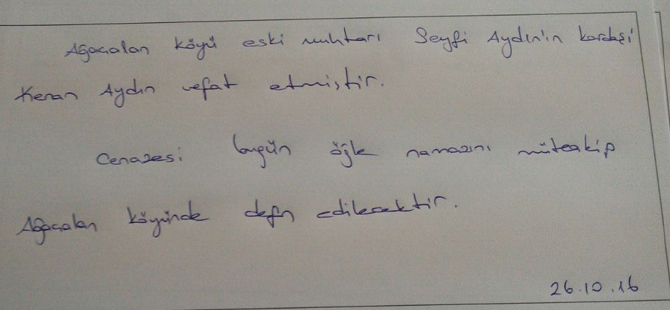 Ağacalan köyü eski muhtarı Seyfi Aydın'ın kardeşi
Kenan Aydın vefat etmiştir.
Cenazesi bugün öğle namazını müteakip
Ağacalan köyünde defn edilecektir.
26.10.16